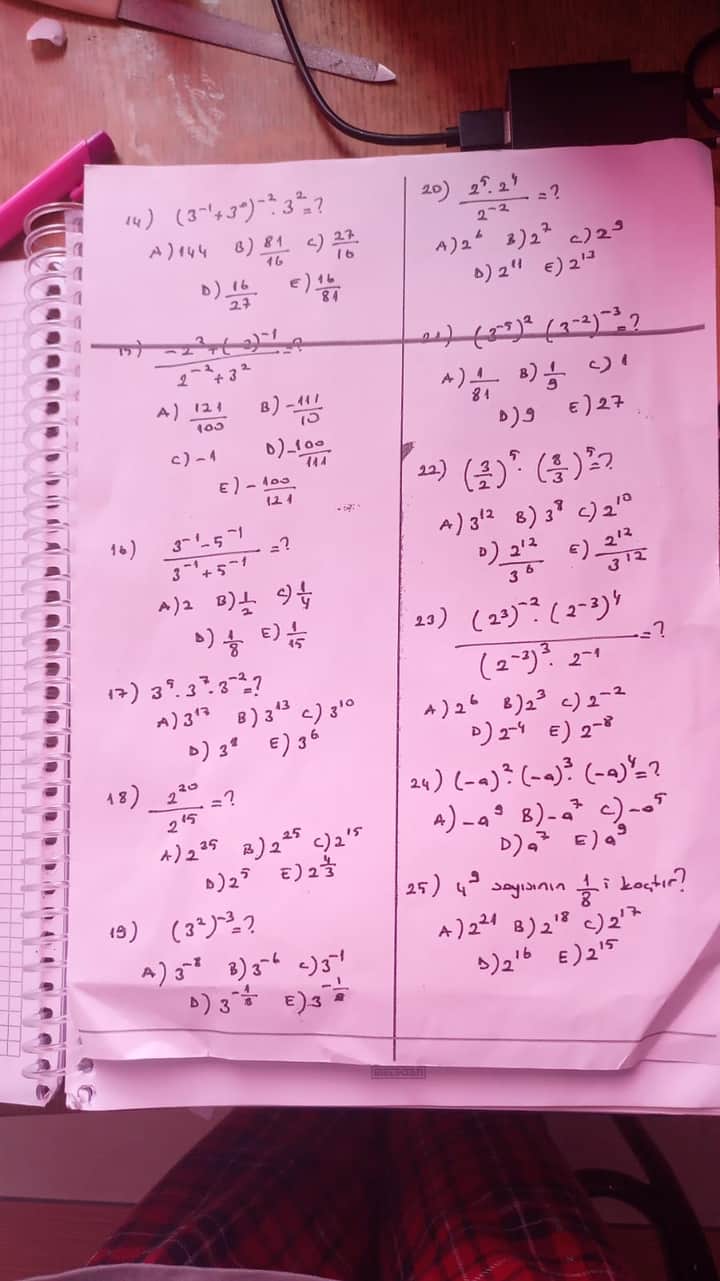 14) (3⁻¹+3⁰)⁻².3²=?
A)144 B)81/16 C)27/16
D)16/27 E)16/81
15)
2⁻²+3²
A) 121/100 B)-111/10
C)-1 D)-100/111
E)-100/121
16) 3⁻¹-5⁻¹/3⁻¹+5⁻¹ =?
A)2 B)1/2 C)1/4
D)1/8 E)1/15
17) 3⁵.3⁷.3⁻²=?
A)3¹⁷ B)3¹³ C)3¹⁰
D)3⁸ E)3⁶
18) 2²⁰/2¹⁵ =?
A)2³⁵ B)2²⁵ C)2¹⁵
D)2⁵ E)2^4/3
19) (3²)⁻³=?
A)3⁻⁸ B)3⁻⁶ C)3⁻¹
D)3^-1/6 E)3
20) 2⁵.2⁴/2⁻² =?
A)2⁶ B)2⁷ C)2⁹
D)2¹¹ E)2¹³
21) (3⁻⁵)² (3⁻²)⁻³=?
A)1/81 B)1/9 C)1
D)9 E)27
22) (3/2)⁵.(8/3)⁵=?
A)3¹² B)3⁸ C)2¹⁰
D)2¹²/3⁶ E)2¹²/3¹²
23) (2³)⁻².(2⁻³)⁴/(2⁻³)³.2⁻¹ =?
A)2⁶ B)2³ C)2⁻²
D)2⁻⁴ E)2⁻⁸
24) (-a)².(-a)³.(-a)⁴=?
A)-a⁹ B)-a⁷ C)-a⁵
D)a⁷ E)a⁹
25) 4⁹ sayısının 1/8 i kaçtır?
A)2²¹ B)2¹⁸ C)2¹⁷
D)2¹⁶ E)2¹⁵